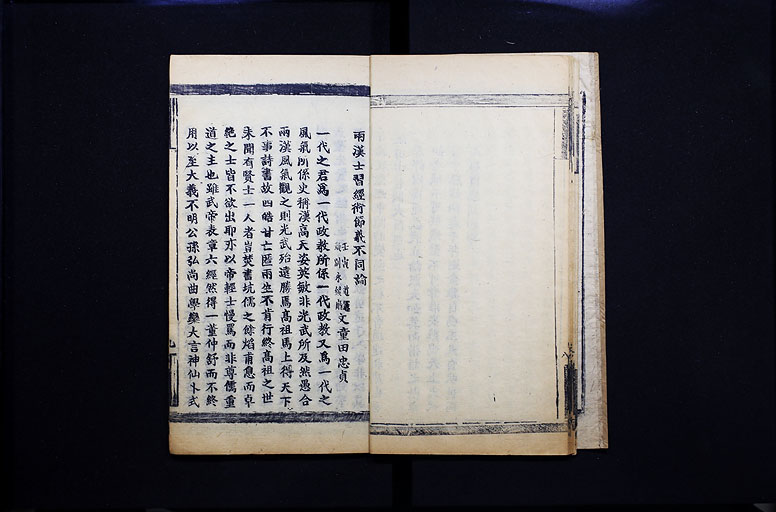 兩漢士習經術節義不同論
壬寅 道
劉永 
文童田忠貞
一代之君爲一代政教所係一代政教又爲一代之
風氣所係史稱漢高天姿英敏非光武所及然愚合
兩漢風氣觀之則光武殆遠勝焉高祖馬上得天下
不事詩書故四皓甘亡匿兩生不肯行終高祖之世
未聞有賢士一人者豈焚書坑儒之餘焰甫息而卓
絶之士皆不欲出耶亦以帝輕士慢罵而非尊儒重
道之主也雖武帝表章六經然得一董仲舒而不終
用以至大義不明公孫弘尚曲學欒大言神仙卜式